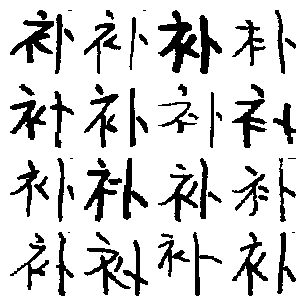 补补补补
补补补补
补补补补
补补补补